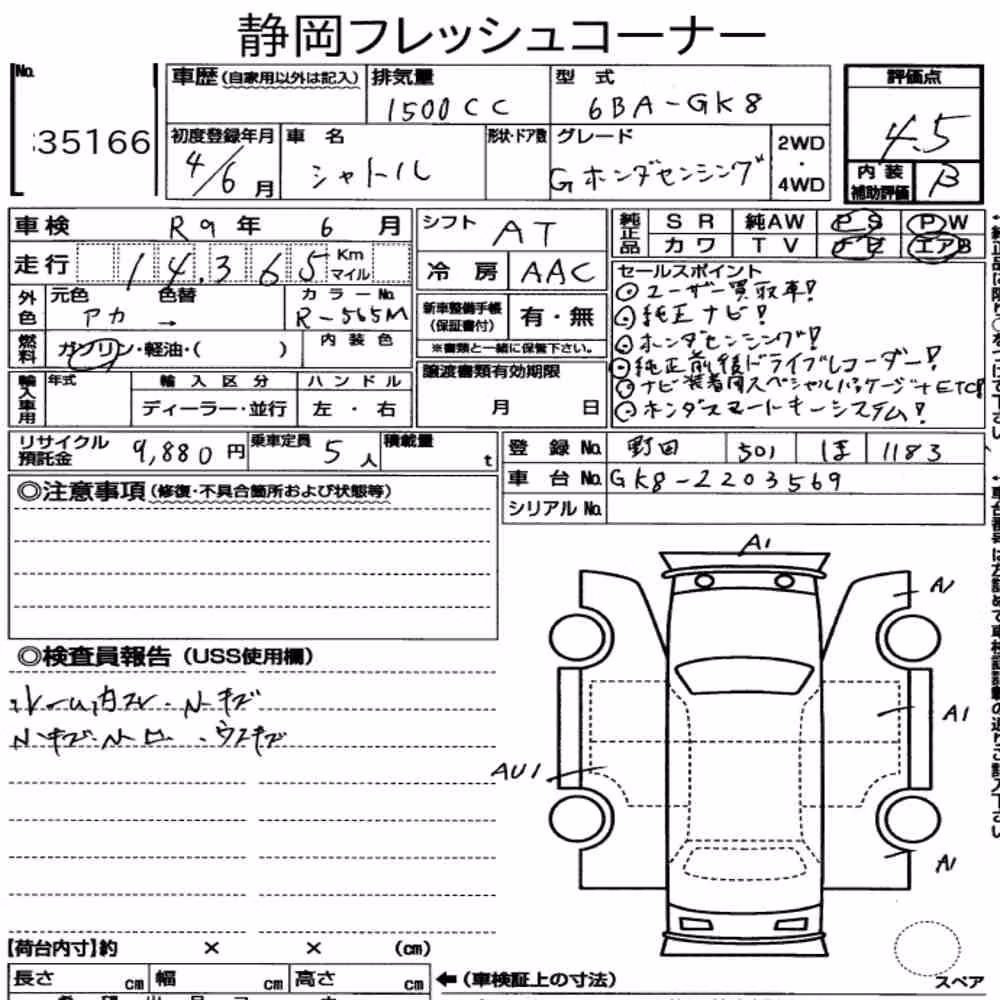 静岡フレッシュコーナー
No.
35166
車歴 (自家用以外は記入)
排気量
1500CC
型 式
6BA-GK8
評価点
4.5
初度登録年月
4/6月
車 名
シャトル
形状・ドア数
グレード
Gホンダセンシング
2WD
・
4WD
内装
補助評価
B
車検 R9年 6月
走行 14,365 Km
マイル
外色
元色 色替
アカ →
カラーNo.
R-565M
燃料
ガソリン・軽油・( )
内装色
輸入車用
年式
輸入区分
ハンドル
ディーラー・並行
左・右
シフト
AT
冷房
AAC
新車整備手帳
(保証書付)
有・無
※書類と一緒に保管下さい。
譲渡書類有効期限
月 日
純正品
SR 純AW PS PW
カワ TV ナビ エアB
セールスポイント
⊙ユーザー買取車!
⊙純正ナビ!
⊙ホンダセンシング!
⊙純正前後ドライブレコーダー!
⊙ナビ装着用スペシャルパッケージ+ETC!
⊙ホンダスマートキーシステム!
リサイクル
預託金
9,880円
乗車定員
5人
積載量
t
登録No. 野田 501 ほ 1183
車台No. GK8-2203569
シリアルNo.
◎注意事項 (修復・不具合箇所および状態等)
◎検査員報告 (USS使用欄)
N キズ
N キズ. N 凹 . ウスキズ
A1
A1
A1
AU1
A1
スペア
【荷台内寸】約 × × (cm)
長さ cm 幅 cm 高さ cm
←(車検証上の寸法)